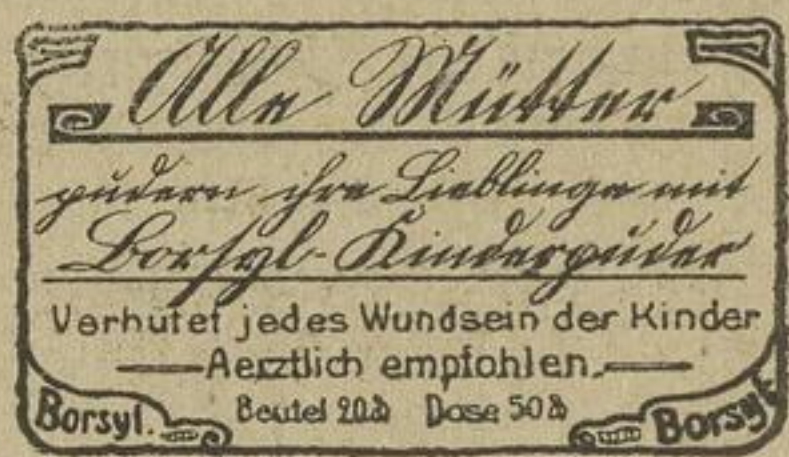 Alle Mütter
pudern ihre Lieblinge mit
Borsyl-Kinderpuder
Verhütet jedes Wundsein der Kinder
Aerztlich empfohlen.
Borsyl. Beutel 20 ₰ Dose 50 ₰ Borsyl